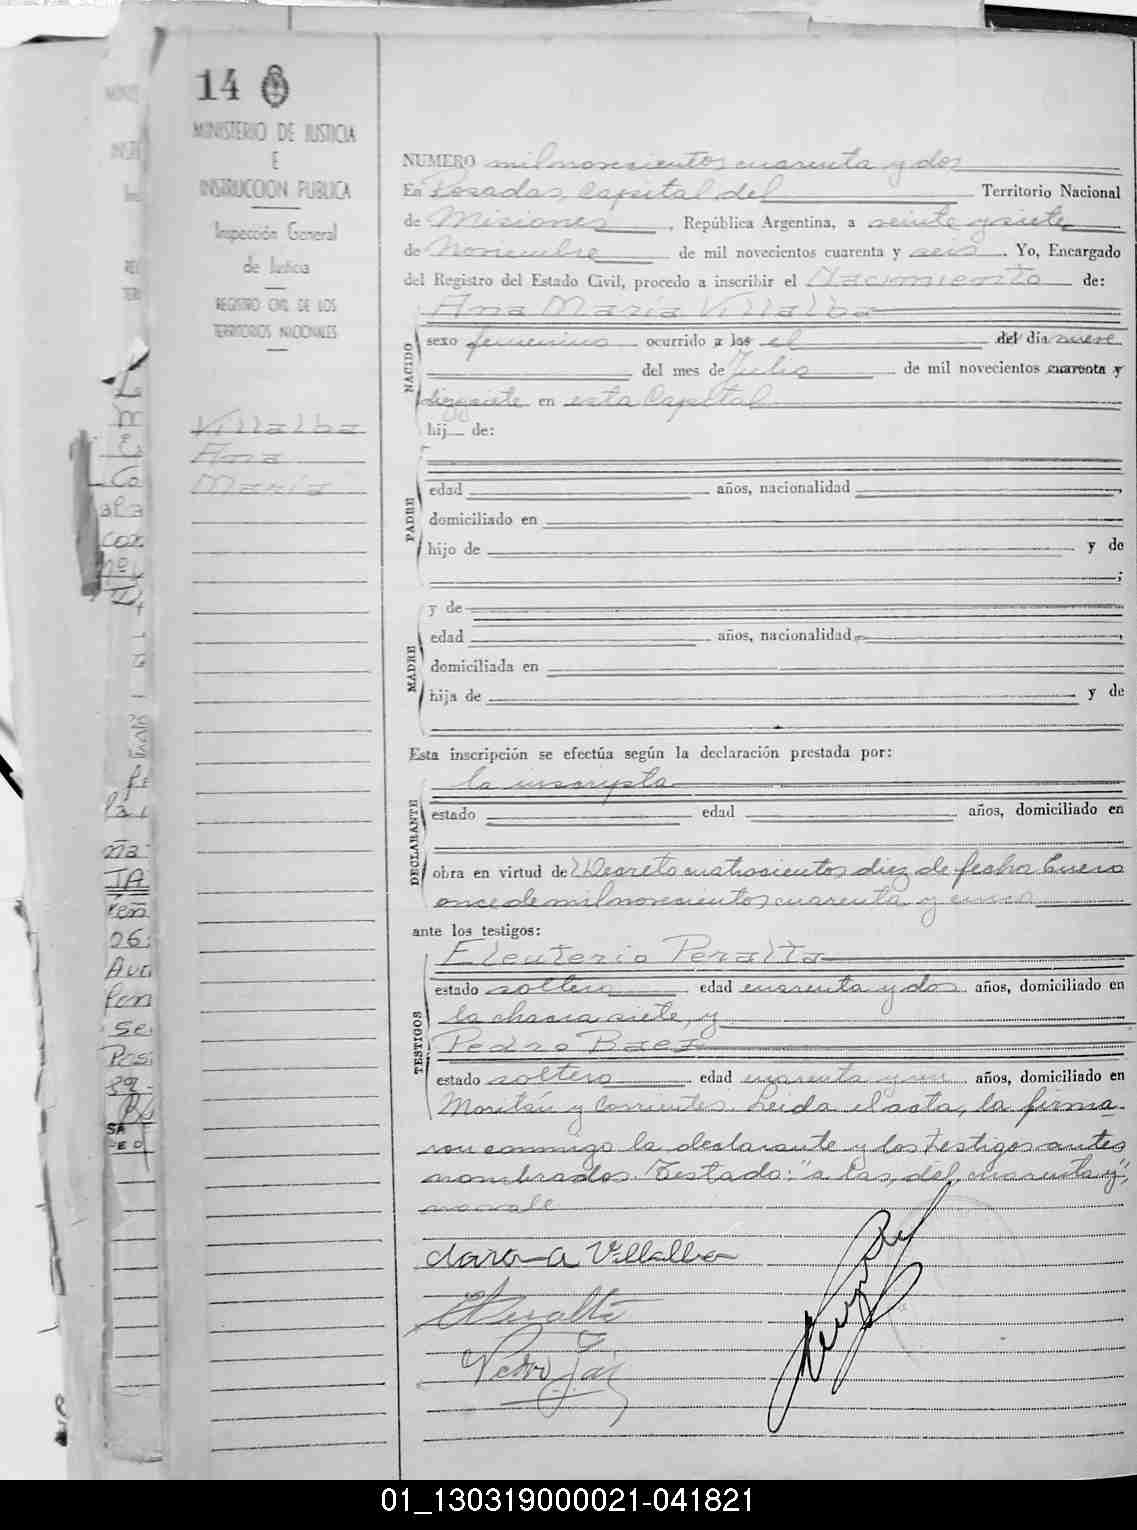 14
MINISTERIO DE JUSTICIA
E
INSTRUCCION PUBLICA
Inspección General
de Justicia
REGISTRO CIVIL DE LOS
TERRITORIOS NACIONALES
Villalba
Ana
María
NUMERO milnovecientos cuarenta y dos
En Posadas, Capital del Territorio Nacional
de Misiones, República Argentina, a veinte y siete
de Noviembre de mil novecientos cuarenta y seis. Yo, Encargado
del Registro del Estado Civil, procedo a inscribir el Nacimiento de:
Ana María Villalba
NACIDO
sexo femenino ocurrido a las el del dia nueve
del mes de Julio de mil novecientos cuarenta y
diezysiete en esta Capital
hij de:
PADRE
edad años, nacionalidad ,
domiciliado en
hijo de y de
;
MADRE
y de
edad años, nacionalidad ,
domiciliada en
hija de y de
Esta inscripción se efectúa según la declaración prestada por:
DECLARANTE
la inscripta
estado edad años, domiciliado en
obra en virtud de Decreto cuatrocientos diez de fecha Enero
once de milnovecientos cuarenta y cinco
ante los testigos:
TESTIGOS
Eleuterio Peralta
estado soltero edad cuarenta y dos años, domiciliado en
la chacra siete, y
Pedro Baez
estado soltero edad cuarenta y un años, domiciliado en
y Corrientes. Leida el acta, la firma-
ron conmigo la declarante y los testigos antes
nombrados. Testado: "a las, del, cuarenta y",
no vale
A Villalba
EPeralta
Pedro
01_130319000021-041821